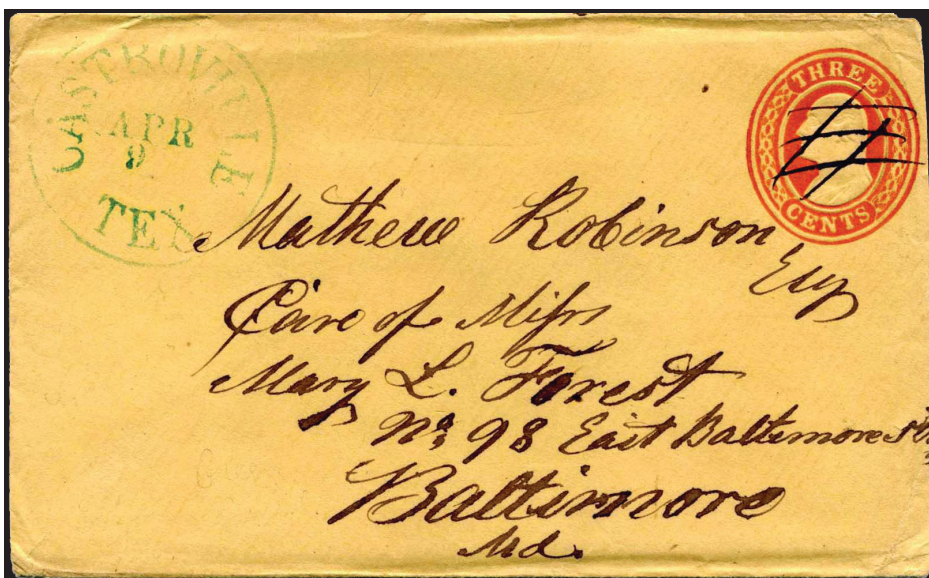 CASTROVILLE
APR
9
TEX
THREE
CENTS
Mathew Robinson,
Esq
Care of Miſs
Mary L. Forest
No 98 East Baltimore St
Baltimore
Md.